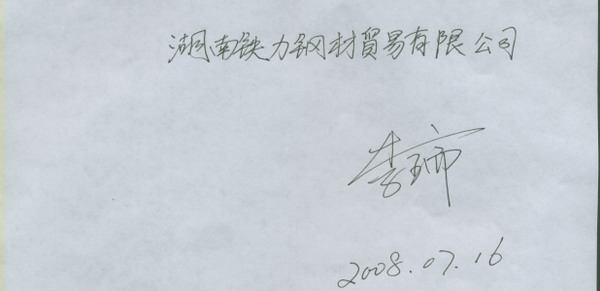 湖南铁力钢材貿易有限公司
2008.07.16